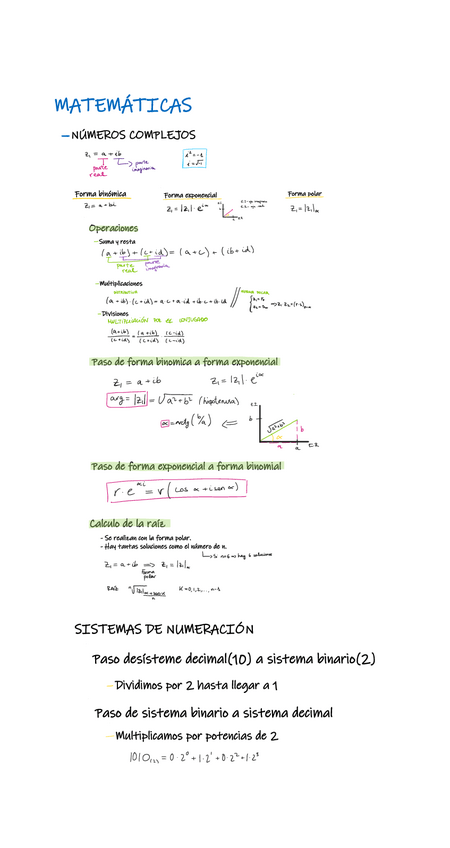 MATEMÁTICAS
– NÚMEROS COMPLEJOS
z₁ = a + ib
parte real
parte imaginaria
i² = -1
i = √-1
Forma binómica
Forma exponencial
Forma polar
z₁ = a + bi
z₁ = |z₁| · e^iα
z₁ = |z₁|α
Operaciones
– Suma y resta
(a + ib) + (c + id) = (a + c) + (ib + id)
parte real
parte imaginaria
– Multiplicaciones
(a + ib) · (c + id) = a·c + a·id + ib·c + ib·id
– Divisiones
MULTIPLICACIÓN POR EL CONJUGADO
(a+ib)/(c+id) = (a+ib)/(c+id) · (c-id)/(c-id)
Paso de forma binomica a forma exponencial
z₁ = a + ib
z₁ = |z₁| · e^iα
arg = |z₁| = √a² + b² (hipotenusa)
α = arctg (b/a) ⇐
√a²+b²
b
a
Paso de forma exponencial a forma binomial
r · e^αi = r (cos α + i sen α)
Calculo de la raíz
- Se realizan con la forma polar.
- Hay tantas soluciones como el número de n.
Si n=6 → hay 6 soluciones
z₁ = a + ib ⇒ z₁ = |z₁|α
Forma polar
RAÍZ
K = 0, 1, 2, ..., n-1
SISTEMAS DE NUMERACIÓN
Paso desísteme decimal(10) a sistema binario(2)
– Dividimos por 2 hasta llegar a 1
Paso de sistema binario a sistema decimal
– Multiplicamos por potencias de 2
1010₍₂₎ = 0·2⁰ + 1·2¹ + 0·2² + 1·2³